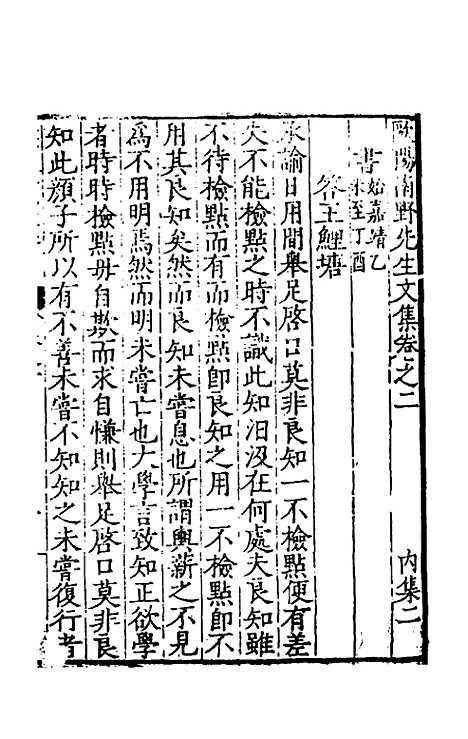 歐陽南野先生文集卷之二 內集二
書始嘉靖乙未至丁酉
答王鯉塘
承諭日用間舉足啓口莫非良知一不檢點便有差
失不能檢點之時不識此知汨沒在何處夫良知雖
不待檢點而有而檢點卽良知之用一不檢點卽不
用其良知矣然而良知未嘗息也所謂輿薪之不見
爲不用明焉然而明未嘗亡也大學言致知正欲學
者時時檢點毋自欺而求自慊則舉足啓口莫非良
知此顏子所以有不善未嘗不知知之未嘗復行者